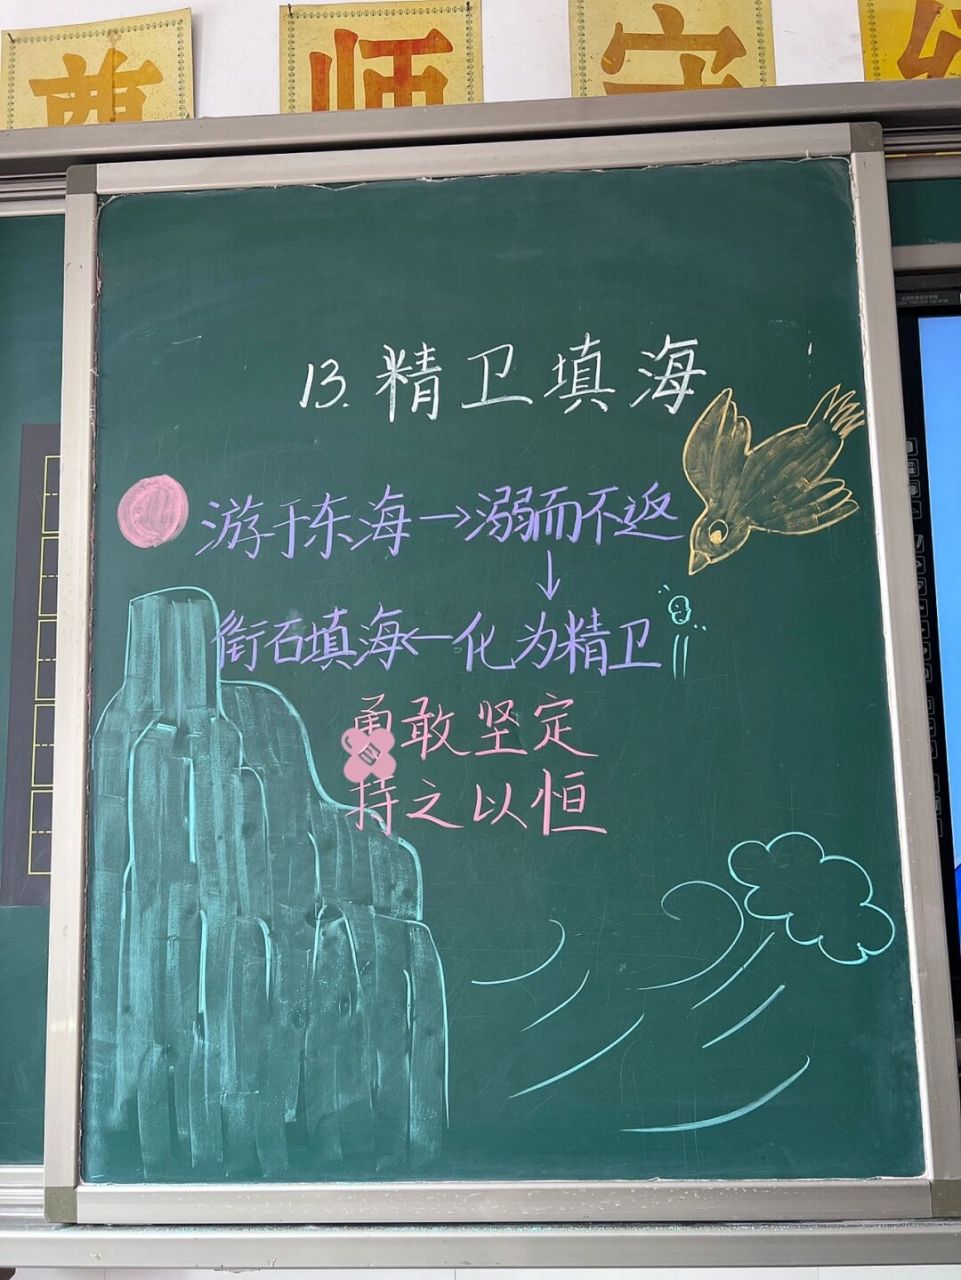 尊师守纪
13.精卫填海
游于东海→溺而不返
↓
衔石填海←化为精卫
勇敢坚定
持之以恒